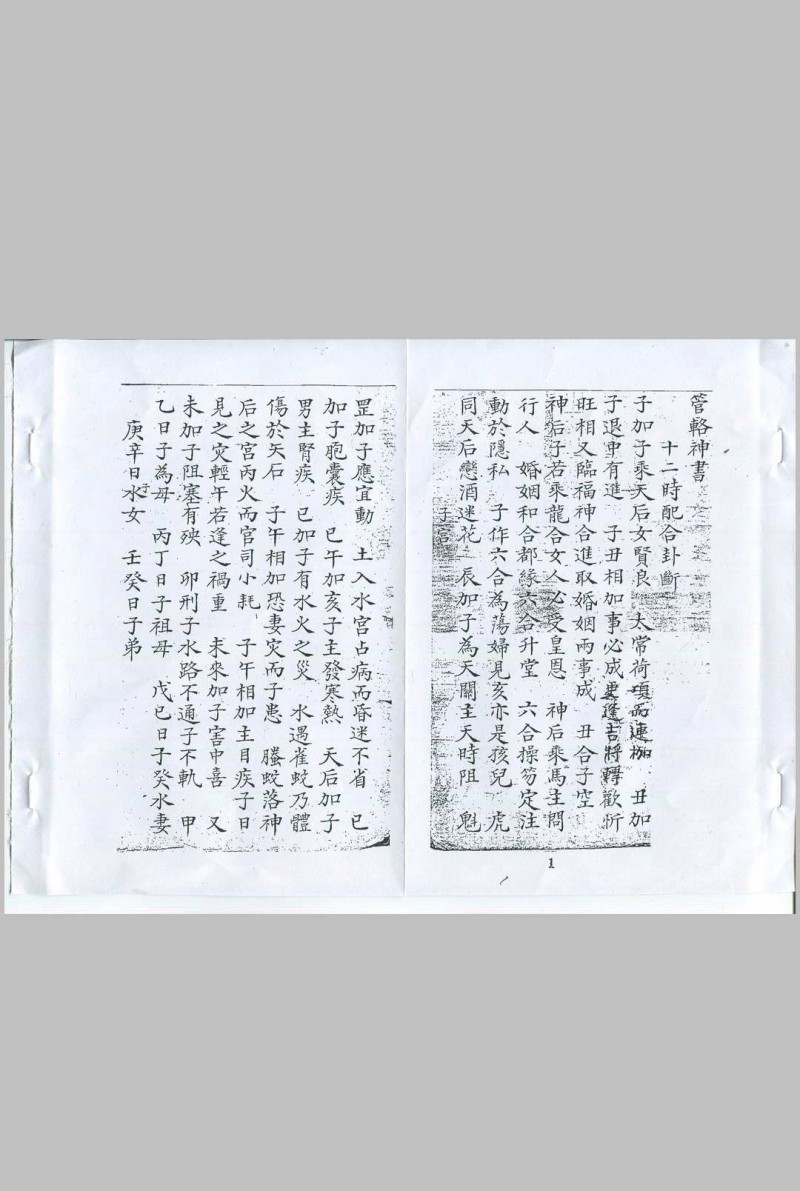 管輅神書
十二時配合卦斷
子加子乘天后女賢良 太常荷項而連枷 丑加
子退中有進 子丑相加事必成 更逢吉將轉歡忻
旺相又臨福神合進取婚姻兩事成 丑合子空
神后子若乘龍合女人必受皇恩 神后乘馬主問
行人 婚姻和合都緣六合升堂 六合操笏定注
動於隱私 子作六合為蕩婦見亥亦是孩兒 虎
同天后戀酒迷花 辰加子為天關主天時阻 魁
子宮
1
罡加子應宜動 土入水宮占病而昏迷不省 巳
加子胞囊疾 巳午加亥子主發寒熱 天后加子
男主腎疾 巳加子有水火之災 水遇雀蚊乃體
傷於矢石 子午相加恐妻灾而子患 螣蚊落神
后之宮丙火而官司小耗 子午相加主目疾子日
見之灾輕午若逢之禍重 未來加子害中喜 又
未加子阻塞有殃 卯刑子水路不通子不軌 甲
乙日子為母 丙丁日子祖母 戊己日子癸水妻
庚辛日水子女 壬癸日子弟